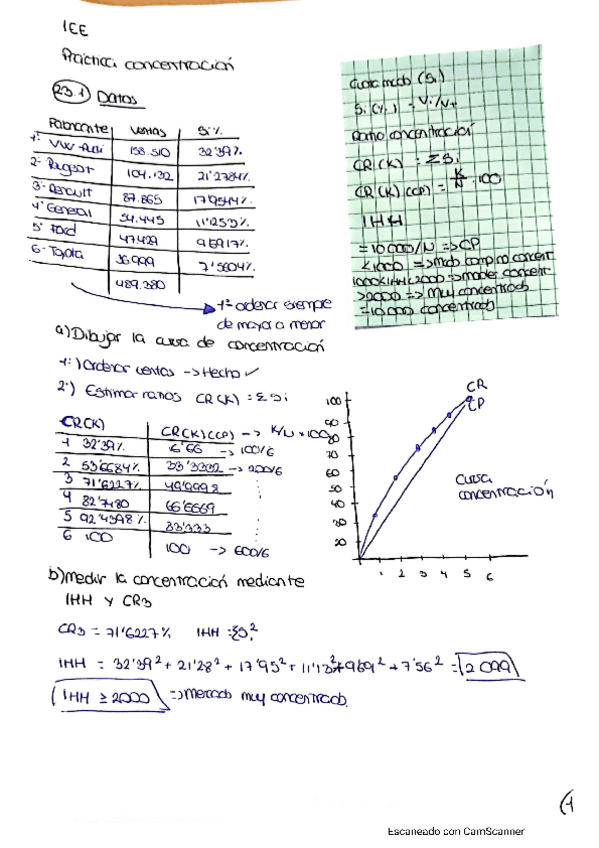 ICE
Práctica concentración
R3.1 Datos
Fabricante ventas Si%
1º VW-Audi 158.510 32'39%
2º Peugeot 104.132 21'2784%
3º Renault 87.865 17'9544%
4º General 54.445 11'1253%
5º Ford 47.429 9'6917%
6º Toyota 36.999 7'5604%
489.380
1º ordenar siempre
de mayor a menor
Cuota mdo (Si)
Si(%) = Vi/Vt
Ratio concentración
CR(K) = ΣSi
CR(K)(CP) = K/N · 100
IHH
= 10000/N => CP
<1000 => Mdo comp o no concent
1000<IHH<2000 => moder concent
>2000 => Muy concentrado
= 10000 concentrado
a) Dibujar la curva de concentración
1º) Ordenar ventas -> Hecho ✓
2º) Estimar ratios CR(K) = ΣSi
CR(K) CR(K)(CP) -> K/N x 100
1 32'39% 16'66 -> 100/6
2 53'6684% 33'3332 -> 200/6
3 71'6227% 49'9998
4 82'7480 66'6669
5 92'4398% 83'333
6 100 100 -> 600/6
CR
CP
100
90
80
70
60
50
40
30
20
1 2 3 4 5 6
curva
concentración
b) Medir la concentración mediante
IHH y CR3
CR3 = 71'6227% IHH = ΣSi²
IHH = 32'39² + 21'28² + 17'95² + 11'13² + 9'69² + 7'56² = 2099
IHH ≥ 2000 => Mercado muy concentrado.
1
Escaneado con CamScanner